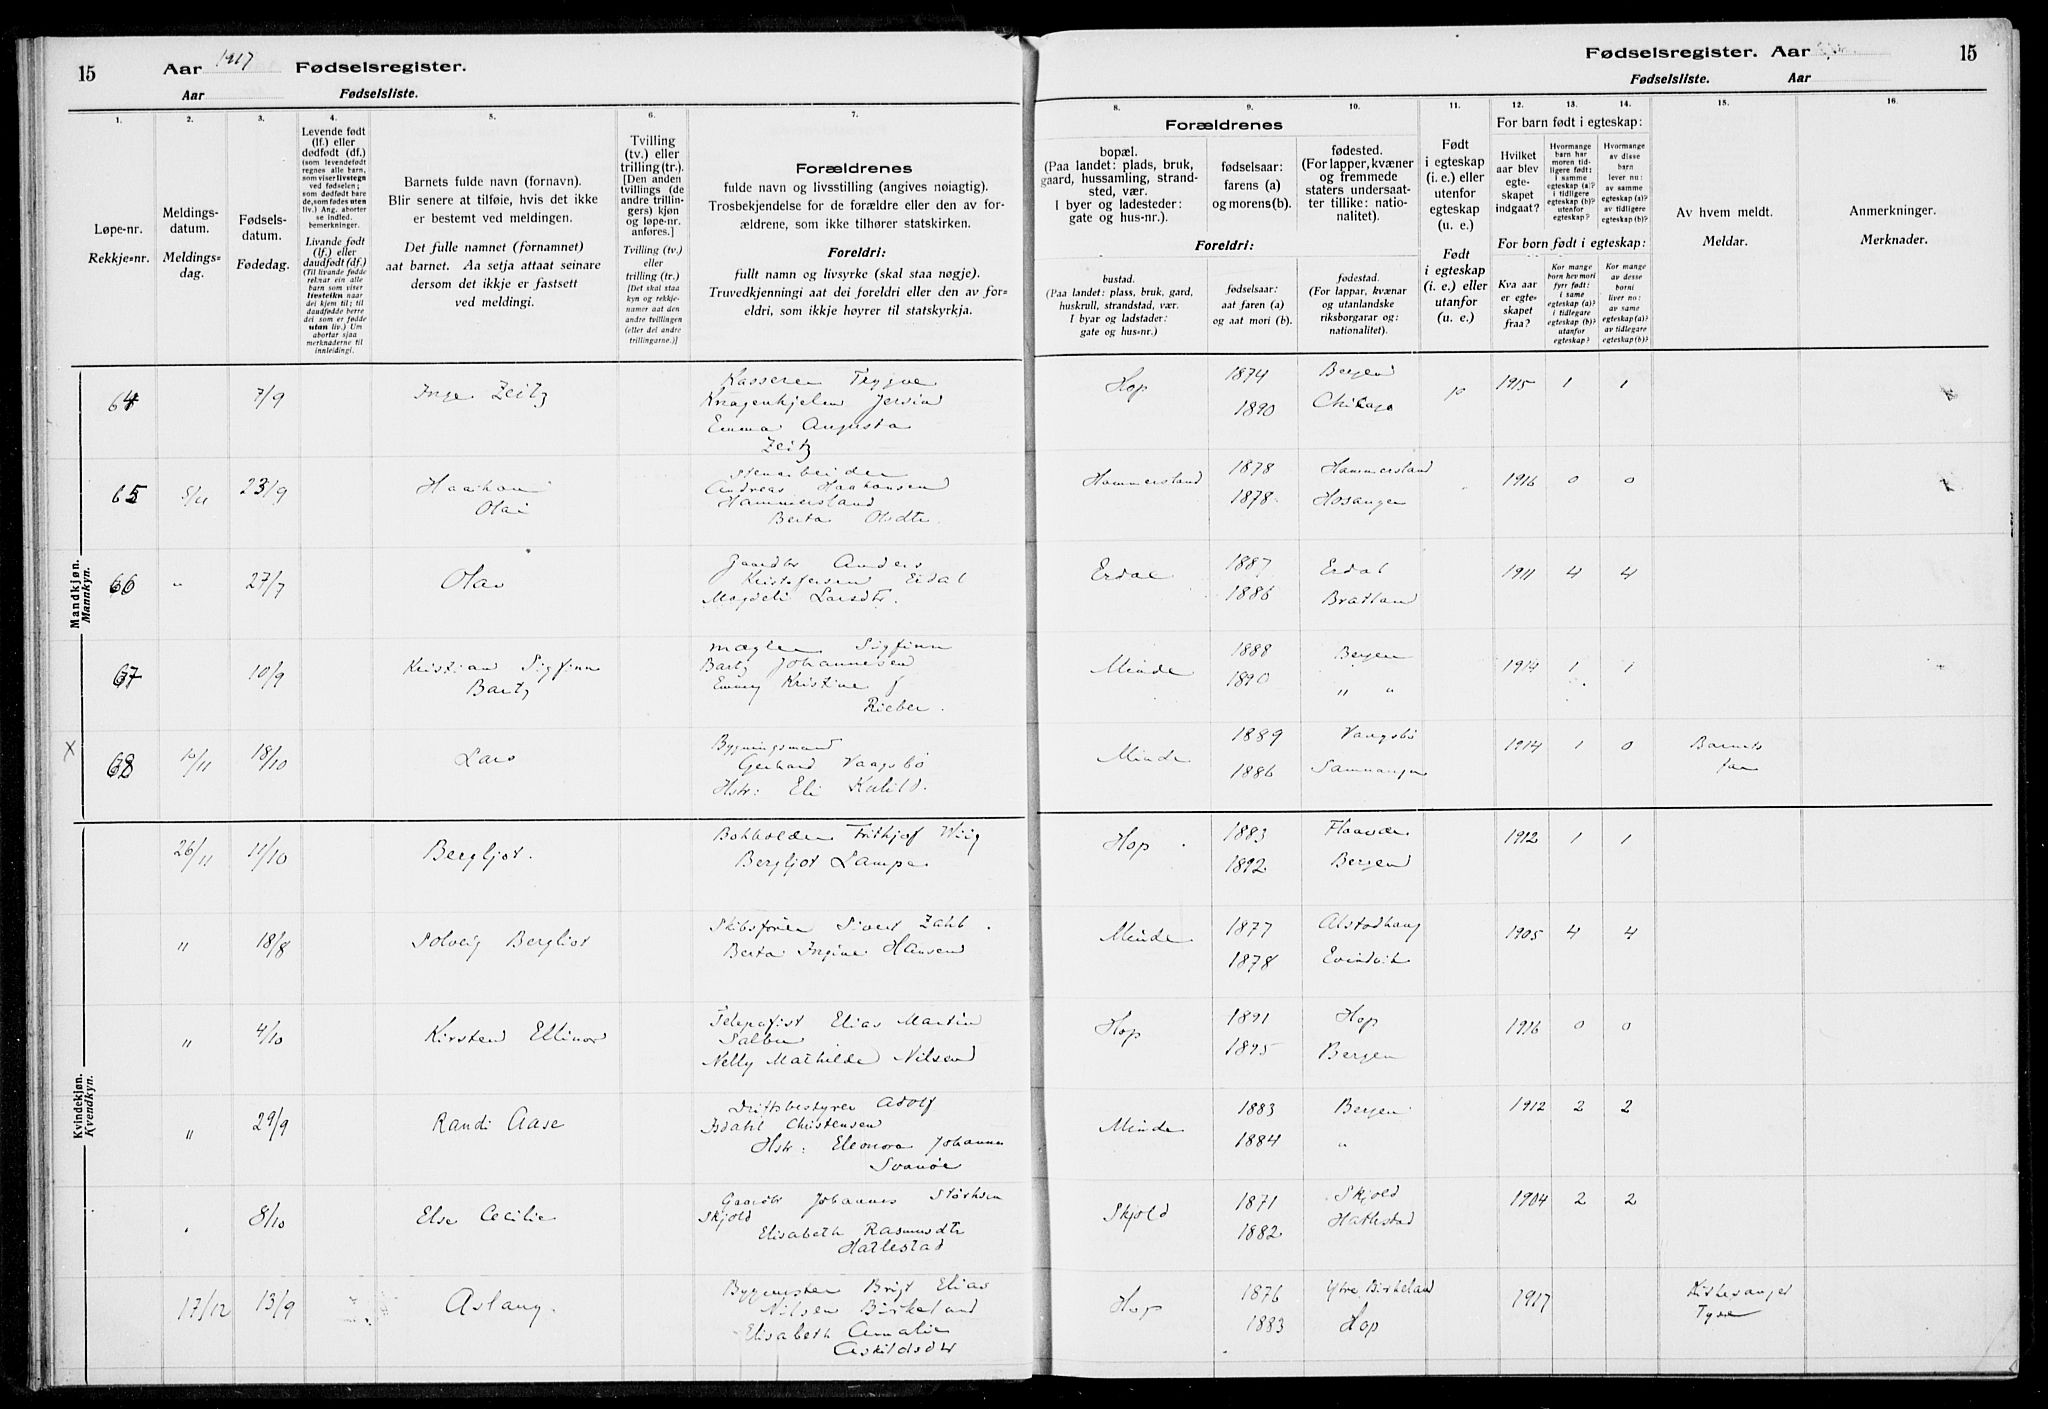 15 Aar 1917 Fødselsregister.
Aar Fødselsliste.
Fødselsregister. Aar 15
Fødselsliste. Aar
1. 2. 3. 4. 5. 6. 7. 8. 9. 10. 11. 12. 13. 14. 15. 16.
Løpe-nr.
Rekkje-nr.
Meldings-
datum.
Meldings-
dag.
Fødsels-
datum.
Fødedag.
Levende født
(lf.) eller
dødfødt (df.)
(som levendefødt
regnes alle barn,
som viser livstegn
ved fødselen;
som dødfødt bare
de, som fødes uten
liv.) Ang. aborter
se indled.
bemerkninger.
Livande født
(lf.) eller
daudfødt (df.)
(Til livande fødde
reknar ein alle
barn som viser
livsteikn naar
dei kjem til; til
daudfødde berre
dei som er fødde
utan liv.) Um
abortar sjaa
merknaderne til
innleidingi.
Barnets fulde navn (fornavn).
Blir senere at tilføie, hvis det ikke
er bestemt ved meldingen.
Det fulle namnet (fornamnet)
aat barnet. Aa setja attaat seinare
dersom det ikkje er fastsett
ved meldingi.
Tvilling
(tv.) eller
trilling (tr.).
[Den anden
tvillings (de
andre trillin-
gers) kjøn
og løpe-nr.
anføres.]
Tvilling (tv.)
eller
trilling (tr.)
[Det skal staa
kyn og rekkje-
nummer aat den
andre tvillingen
(eller dei andre
trillingarne.)]
Forældrenes
fulde navn og livsstilling (angives nøiagtig).
Trosbekjendelse for de forældre eller den av for-
ældrene, som ikke tilhører statskirken.
Foreldri:
fullt namn og livsyrke (skal staa nøgje).
Truvedkjenningi aat dei foreldri eller den av for-
eldri, som ikkje høyrer til statskyrkja.
Forældrenes
bopæl.
(Paa landet: plads, bruk,
gaard, hussamling, strand-
sted, vær.
I byer og ladesteder:
gate og hus-nr.).
fødselsaar:
farens (a)
og morens (b).
fødested.
(For lapper, kvæner
og fremmede
staters undersaat-
ter tillike: natio-
nalitet).
Foreldri:
bustad.
(Paa landet: plass, bruk, gard,
huskrull, strandstad, vær.
I byer og ladstader:
gate og hus-nr.)
fødselsaar:
aat faren (a)
og aat mori (b).
fødestad.
(For lappar, kvænar
og utanlandske
riksborgarar og:
nationalitet).
Født
i egteskap
(i. e.) eller
utenfor
egteskap
(u. e.)
Født
i egteskap
(i. e.) eller
utanfor
(u. e.)
For barn født i egteskap:
Hvilket
aar blev
egte-
skapet
indgaat?
Hvormange
barn har
moren tid-
ligere født:
i samme
egteskap (a)?
i tidligere
egteskap (b)?
utenfor
egteskap?
Hvormange
av disse
barn
lever nu:
av samme
egteskap (a)?
av tidligere
egteskap (b)?
For born født i egteskap:
Kva aar
er egte-
skapet
fraa?
Kor mange
born hev mori
fyrr født:
i same
egteskap (a)?
i tidlegare
egteskap (b)?
utanfor
egteskap?
Kor mange
av desse
borni
liver no:
av same
egteskap (a)?
av tidlegare
egteskap (b)?
Av hvem meldt.
Meldar.
Anmerkninger.
Merknader.
Mandkjøn.
Mannkyn.
64 7/9 Inge Zeitz Kasserer Trygve 1874 Bergen
Hop 1915 1 1
Knagenhjelm Jersin 1890 Chicago
Emma Augusta
Zeitz
65 5/11 23/9 Haakon Stenarbeider 1878 Hammersland
Olai Andreas Haakonsen Hammersland 1916 0 0
Hammersland 1878 Hosanger
Berta Olsdtr.
66 " 27/7 Olav Gaardbr Anders 1887 Erdal
Kristofersen Eidal Erdal 1911 4 4
Magdeli Larsdtr. 1886 Bratland
67 10/9 Kristian Sigfinn mægler Sigfinn 1888 Bergen
Bartz Bartz Johannesen Minde 1914 1 1
Emmy Kristine J 1890 " "
Rieber.
X 68 10/11 18/10 Lars Bygningsmand 1889 Vaagsbö
Gerhard Vaagsbø Minde 1914 1 0 Barnets
Hstr: Eli Kulild. 1886 Samnanger far
Kvindekjøn.
Kvendkyn.
26/11 11/10 Bergljot. Bokholder Frithjof Wiig Hop 1883 1912 1 1
Bergljot Lampe 1892 Bergen
" 18/8 Solveig Bergliot Skibsfører Sivert Zahl. Minde 1877 Alstadhaug 1905 4 4
Berta Ingine Hansen 1878 Evindvik
" 4/10 Kirsten Ellinor Telegrafist Elias Martin Hop 1891 Hop 1916 0 0
Salbu
Nelly Mathilde Nilsen 1895 Bergen
" 29/9 Randi Aase Driftsbestyrer Adolf Minde 1883 Bergen 1912 2 2
Isdahl Christensen
Hstr: Eleonora Johanne 1884 "
Svanøe
" 8/10 Else Cecilie Gaardbr Johannes Størksen Skjold 1871 Skjold 1904 2 2
Skjold
Elisabeth Rasmusdtr 1882 Hatlestad
Hatlestad
17/12 13/9 Aslaug. Bygmester Brigt Elias Hop 1876 Ytre Birkeland 1917 Kirkesanger
Nilsen Birkeland Tyse
Elisabeth Amalie 1883 Hop
Askildsdtr